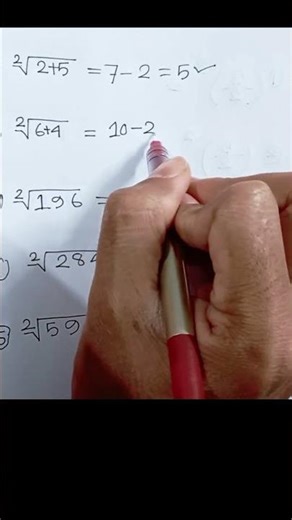 ²√2+5 = 7-2 = 5✓
²√6+4 = 10-2
²√196 =
²√284
²√59